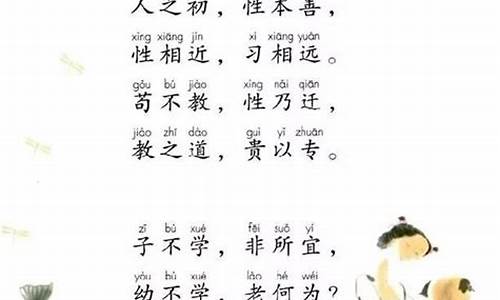 人之初，性本善，
xìng xiāng jìn xí xiāng yuǎn
性相近，习相远。
gǒu bú jiào xìng nǎi qiān
苟不教，性乃迁，
jiào zhī dào guì yǐ zhuān
教之道，贵以专。
zǐ bù xué fēi suǒ yí
子不学，非所宜，
yòu bù xué lǎo hé wéi
幼不学，老何为？